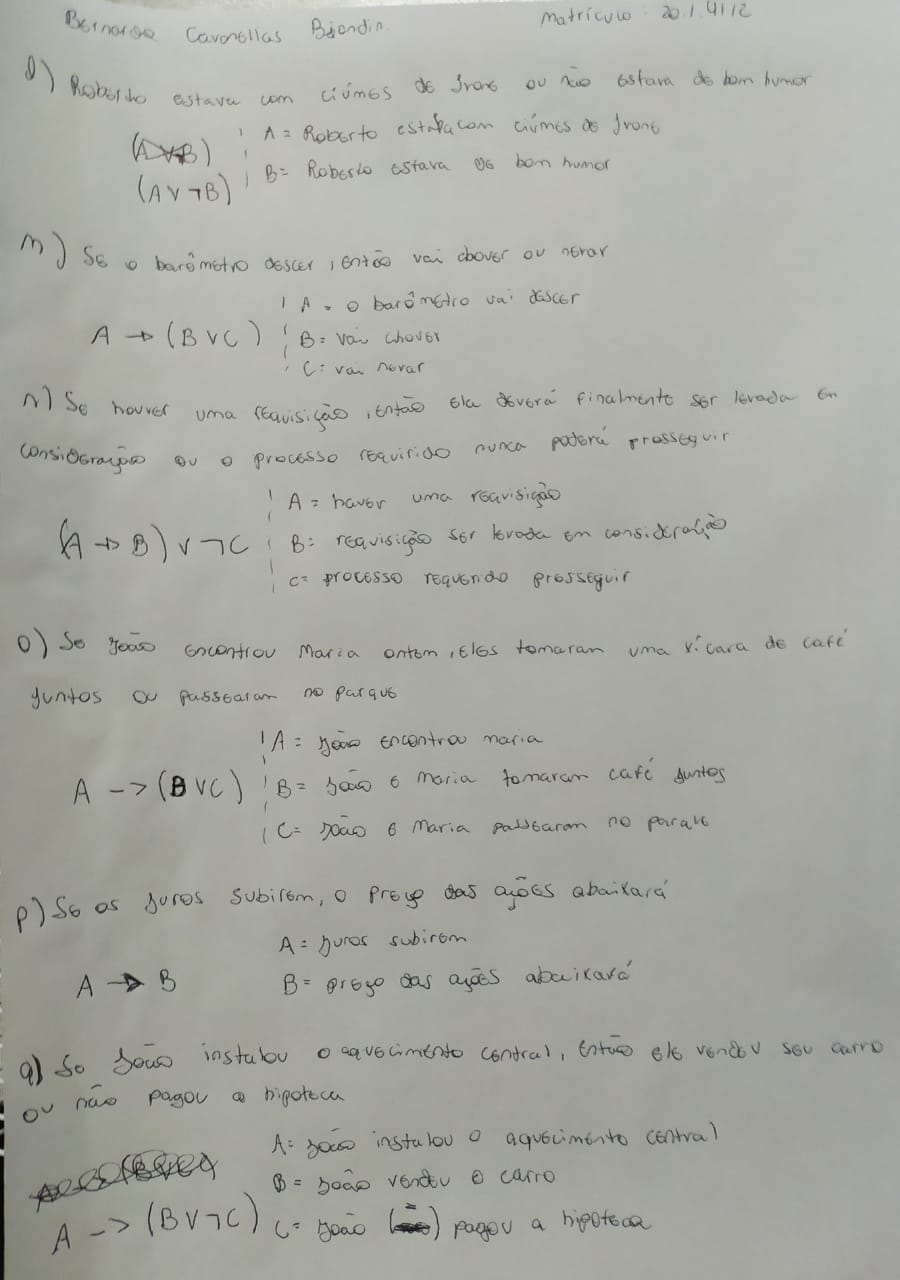 Bernardo Cavanellas Biondin. Matrícula: 20.1.4112
l) Roberto estava com ciúmes de Ivone ou não estava de bom humor
(A∨B)
A = Roberto estava com ciúmes de Ivone
(A ∨ ¬B)
B = Roberto estava de bom humor
m) Se o barômetro descer, então vai chover ou nevar
A = o barômetro vai descer
A → (B ∨ C)
B = vai chover
C = vai nevar
n) Se houver uma requisição, então ela deverá finalmente ser levada em
consideração ou o processo requirido nunca poderá prosseguir
A = haver uma requisição
(A → B) ∨ ¬C
B = requisição ser levada em consideração
C = processo requerido prosseguir
o) Se João encontrou Maria ontem, eles tomaram uma xícara de café
juntos ou passearam no parque
A = João encontrou maria
A -> (B ∨ C)
B = João e maria tomaram café juntos
C = João e Maria passearam no parque
p) Se os juros subirem, o preço das ações abaixará
A = juros subirem
A → B
B = preço das ações abaixará
q) Se João instalou o aquecimento central, então ele vendeu seu carro
ou não pagou a hipoteca
A = João instalou o aquecimento central
B = João vendeu o carro
A -> (B ∨ ¬C)
C = João (não) pagou a hipoteca